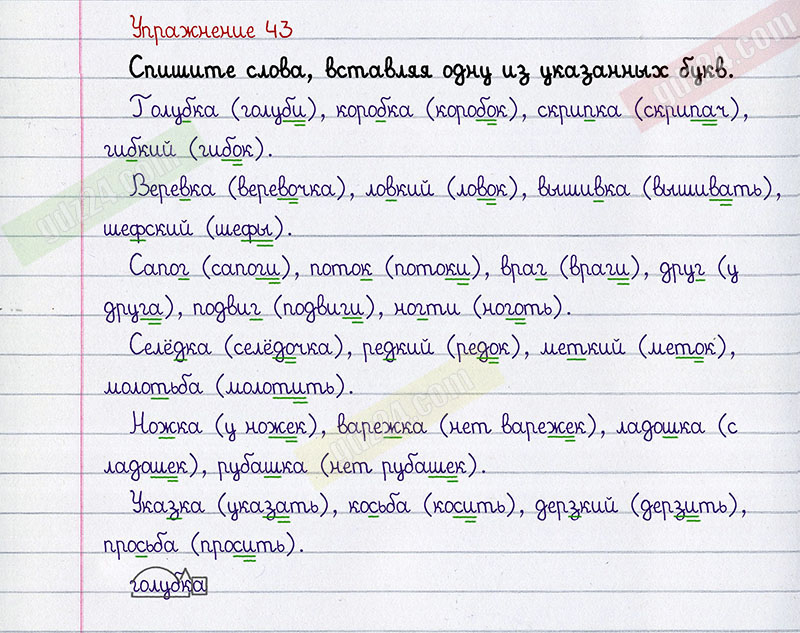 Упражнение 43
Спишите слова, вставляя одну из указанных букв.
Голубка (голуби), коробка (коробок), скрипка (скрипач),
гибкий (гибок).
Веревка (веревочка), ловкий (ловок), вышивка (вышивать),
шефский (шефы).
Сапог (сапоги), поток (потоки), враг (враги), друг (у
друга), подвиг (подвиги), ногти (ноготь).
Селёдка (селёдочка), редкий (редок), меткий (меток),
молотьба (молотить).
Ножка (у ножек), варежка (нет варежек), ладошка (с
ладошек), рубашка (нет рубашек).
Указка (указать), косьба (косить), дерзкий (дерзить),
просьба (просить).
голубка
gdz24.com
gdz24.com
gdz24.com